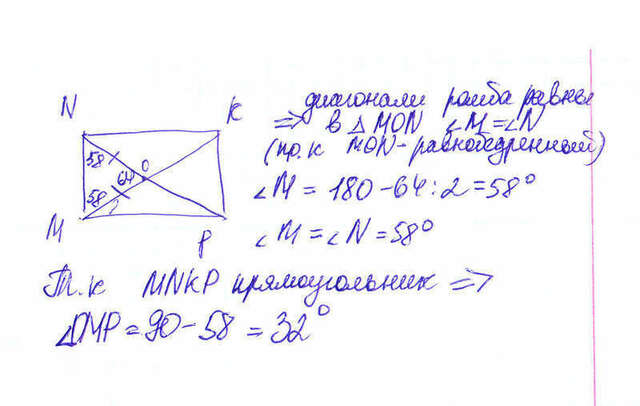 N
K
58
58
64
O
M
P
диагонали ромба равны
=> в △MON ∠M=∠N
(пр.к MON - равнобедренный)
∠M = 180 - 64 : 2 = 58°
∠M = ∠N = 58°
Т.к MNKP прямоугольник =>
∠OMP = 90 - 58 = 32°